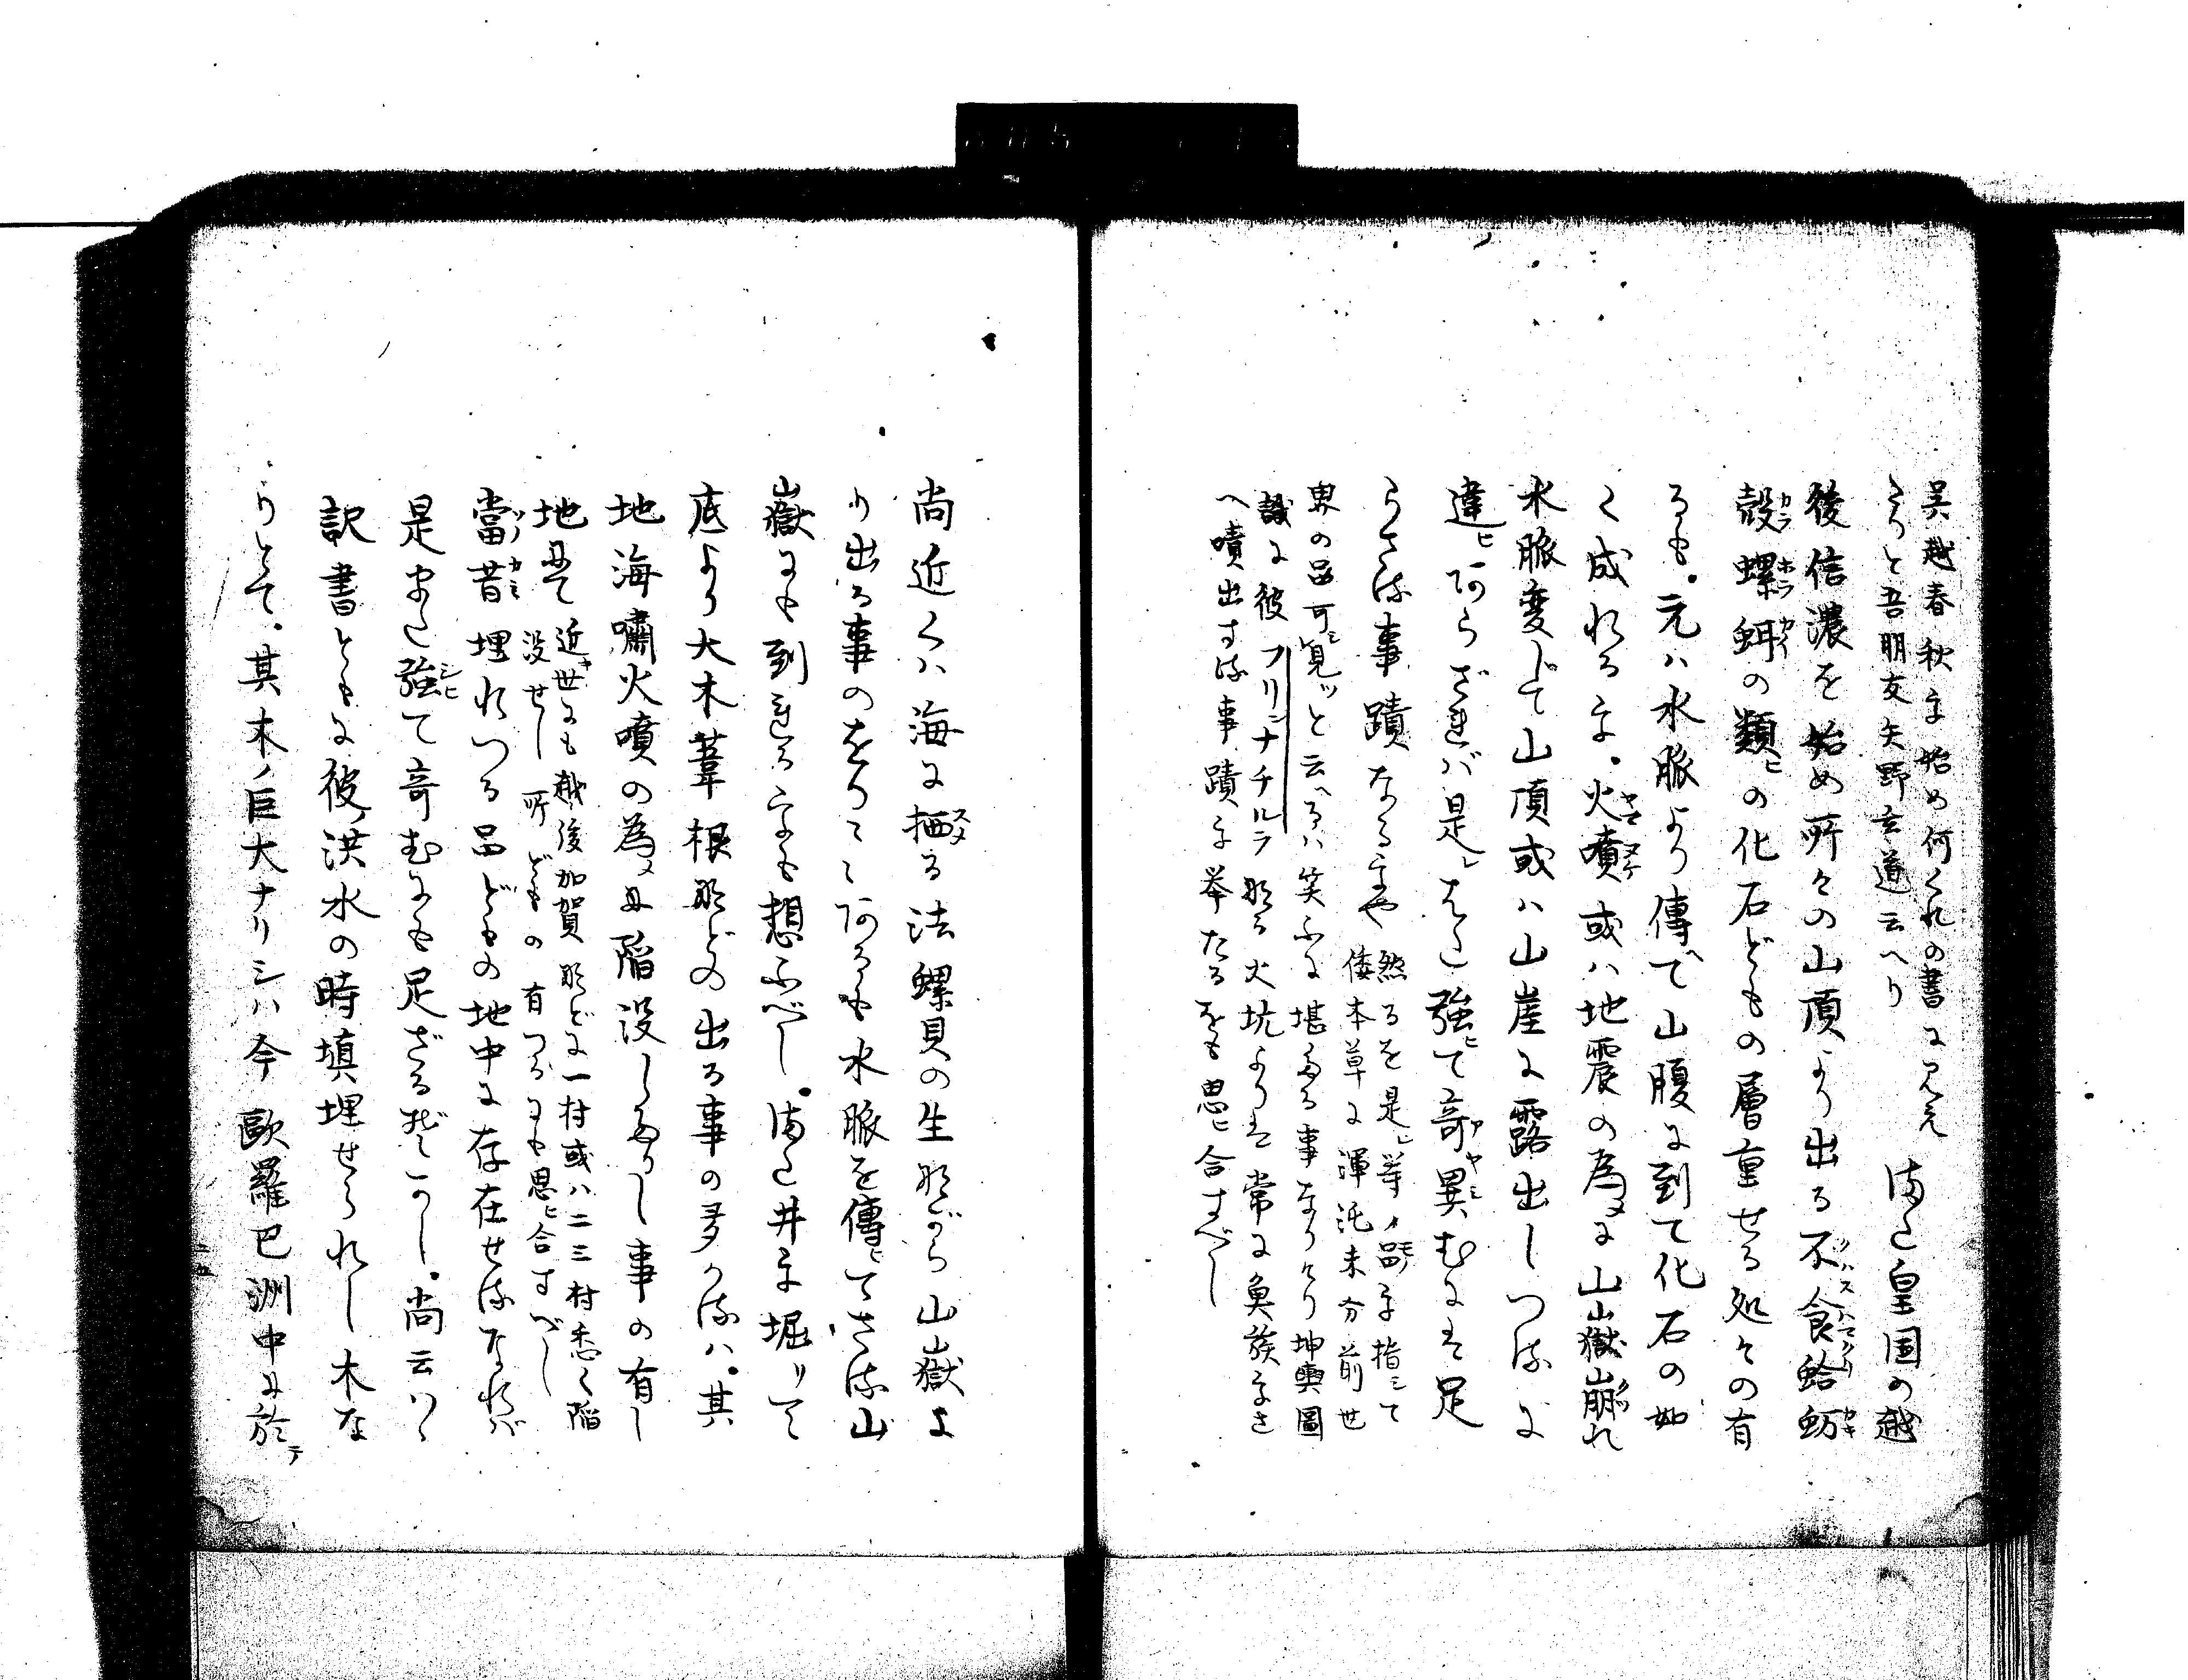 呉越春秋を始め何くれの書に見え
たりと吾朋友矢野玄道云へり
また皇国の越
後信濃を始め所々の山頂より出る不食蛤蛎
殻螺蛽の類の化石どもの層重せる処々の有
るも。元ハ水脈より傳て山腹に到て化石の如
く成れるを。火噴或ハ地震の為に山嶽崩れ
水脈変じて山頂或ハ山崖に露出しつるに
違ひあらざれバ是はた強て奇異むには足
らざる事蹟なるをや
然るを是等ノ品を指して
倭本草に渾沌未分前世
界の品可見ッと云へるハ笑ふに堪たる事なりけり坤輿圖
識に彼フリナチルラなる火坑よりは常に魚族をさ
へ噴出する事蹟を挙たるをも思ヒ合すべし
尚近くハ海に栖る法螺貝の生ながら山嶽よ
り出る事のをり〻あるも水脈を傳てさる山
嶽にも到れるをも想ふべし。また井を堀りて
底より大木葦根などの出る事の多かるハ。其
地海嘯火噴の為メ丑陥没したりし事の有し
地にて
近キ世にも越後加賀などに一村或ハ二三村悉く陥
没せし所どもの有つるにも思ヒ合すべし
當昔埋れつる品どもの地中に存在せるなれバ
是また強て奇むにも足ざるぞかし。尚云ハヾ
訳書ともに彼洪水の時填埋せられし木な
りとて。其木ノ巨大ナリシハ今歐羅巴洲中に於テ